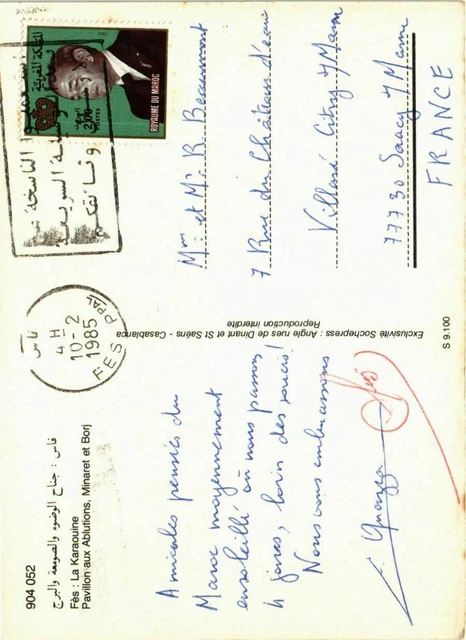 904 052
فاس : جناح الوضوء والصومعة والبرج
Fès : La Karaouine
Pavillon aux Ablutions, Minaret et Borj
Amicales pensées du
Maroc moyennement
ensoleillé où nous passons
4 jours, loin des soucis !
Nous vous embrassons
Exclusivité Sochepress : Angle rues de Dinant et St Saëns - Casablanca
Reproduction interdite
S 9.100
فاس
4 H
10-2
1985
FES PPAL
المملكة المغربية
2,00
POSTES
ROYAUME DU MAROC
Mme et Mr R. Beaumont
7 Rue du Château d'eau
Villaré Citry s/Marne
77730 Saacy s/Marne
FRANCE